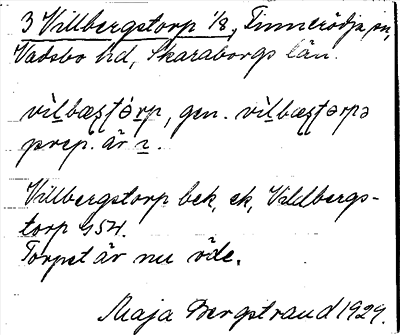 3 Villbergstorp 1/8, Finnerödja sn,
Vadsbo hd, Skaraborgs län.
vilbæsṭȯrp, gen. vilbæsṭɵrpə
prep. är ı.
Villbergstorp bek, ek, Vildbergs-
torp 154.
Torpet är nu öde.
Maja Bergstrand 1929.